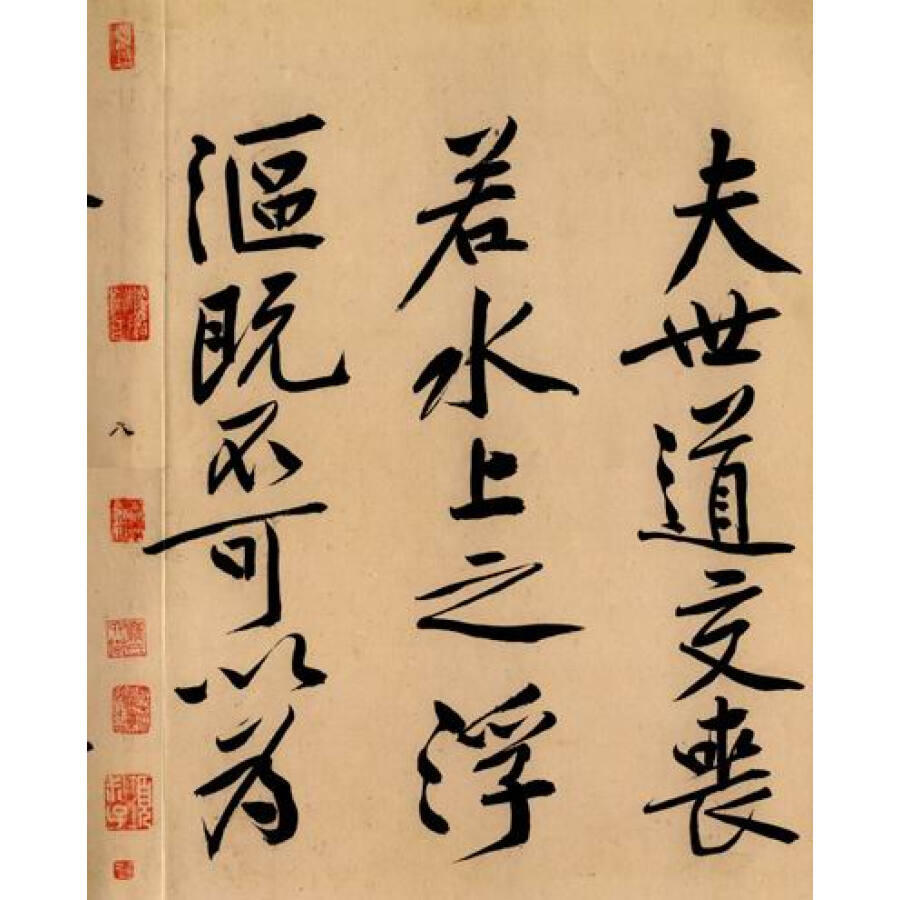 夫世道交喪
若水上之浮
漚既不可以為
八